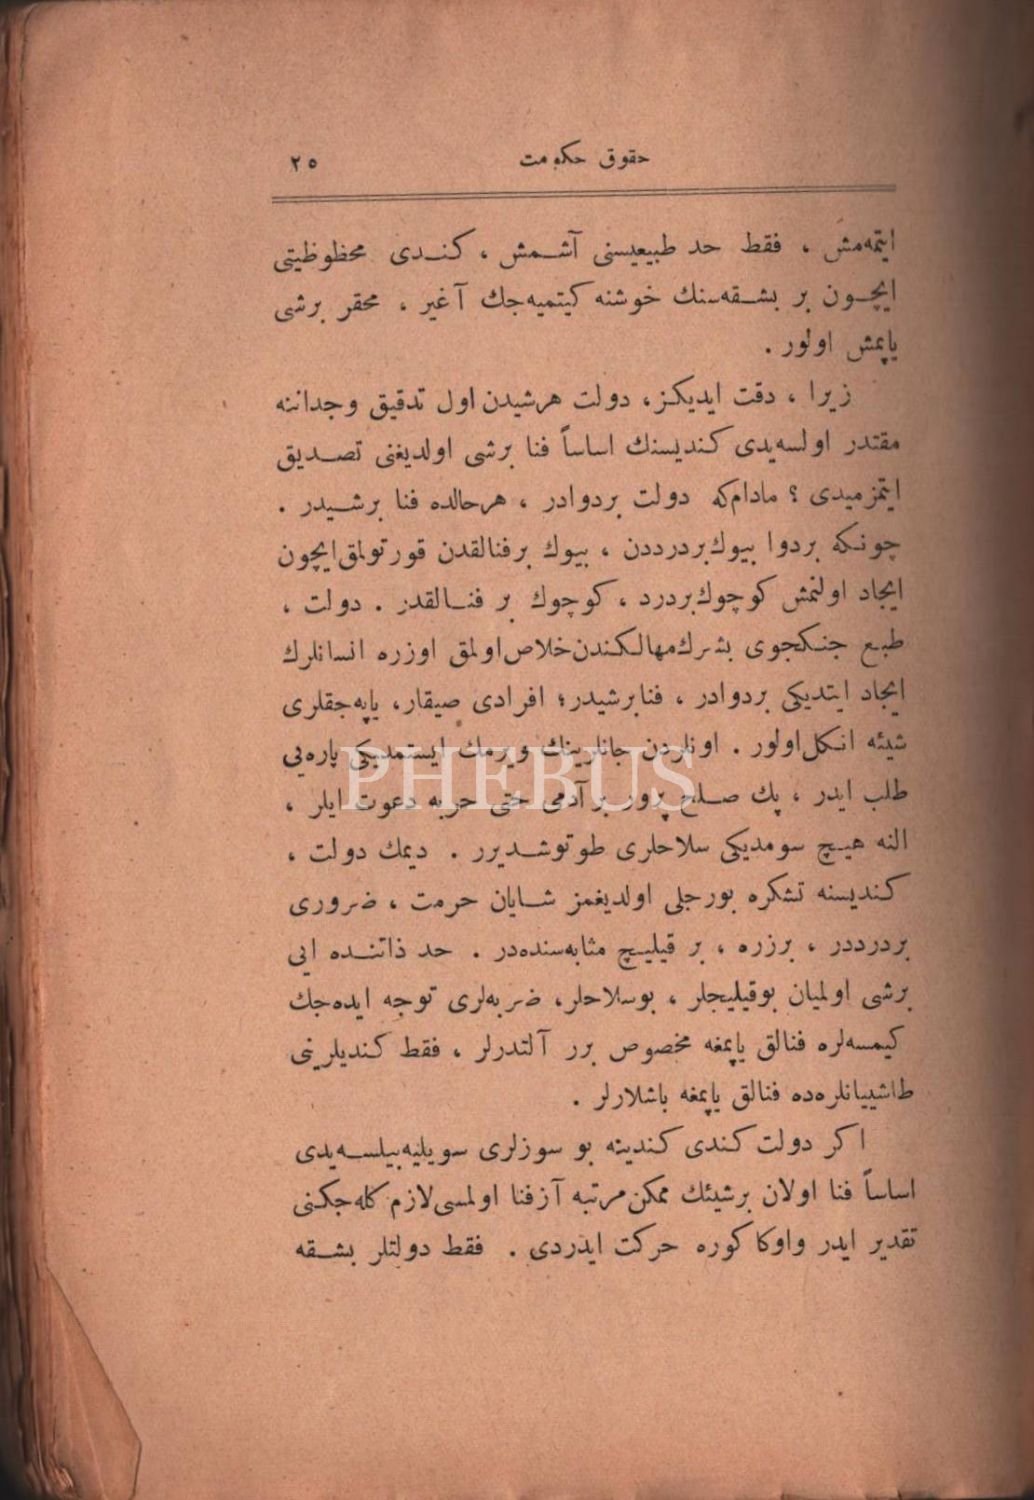 حقوق حكومت ٢٥
ايتمه‌مش ، فقط حد طبيعيسنى آشمش ، كندى محظوظيتى
ايچون بر بشقه‌سنك خوشنه كيتميه‌جك آغير ، محقر برشى
ياپمش اولور .
زيرا ، دقت ايديكز، دولت هرشيدن اول تدقيق وجداننه
مقتدر اولسه‌يدى كنديسنك اساساً فنا برشى اولديغنى تصديق
ايتمزميدى ؟ مادام‌كه دولت بردوادر ، هرحالده فنا برشيدر .
چونكه بردوا بيوك بردرددن ، بيوك برفنالقدن قورتولمق ايچون
ايجاد اولنمش كوچوك بردرد ، كوچوك بر فنالقدر . دولت ،
طبع جنكجوى بشرك مهالكندن خلاص اولمق اوزره انسانلرك
ايجاد ايتديكى بردوادر ، فنا برشيدر؛ افرادى صيقار، ياپه‌جقلرى
شيئه انكل اولور . اونلردن جانلرينك ويرمك ايستمديكى پاره‌يى
طلب ايدر ، پك صلح پرور بر آدمى حتى حربه دعوت ايلر ،
النه هيچ سومديكى سلاحلرى طوتوشديرر . ديمك دولت ،
كنديسنه تشكره بورجلى اولديغمز شايان حرمت ، ضرورى
بردرددر ، برزره ، بر قيليچ مثابه‌سنده‌در . حد ذاتنده ايى
برشى اولميان بوقيليجلر ، بوسلاحلر، ضربه‌لرى توجه ايده‌جك
كيمسه‌لره فنالق ياپمغه مخصوص برر آلتدرلر ، فقط كنديلرينى
طاشييانلره‌ده فنالق ياپمغه باشلارلر .
اكر دولت كندى كندينه بو سوزلرى سويليه‌بيلسه‌يدى
اساساً فنا اولان برشيئك ممكن مرتبه آز فنا اولمسى لازم كله‌جكنى
تقدير ايدر واوكا كوره حركت ايدردى . فقط دولتلر بشقه
PHEBUS